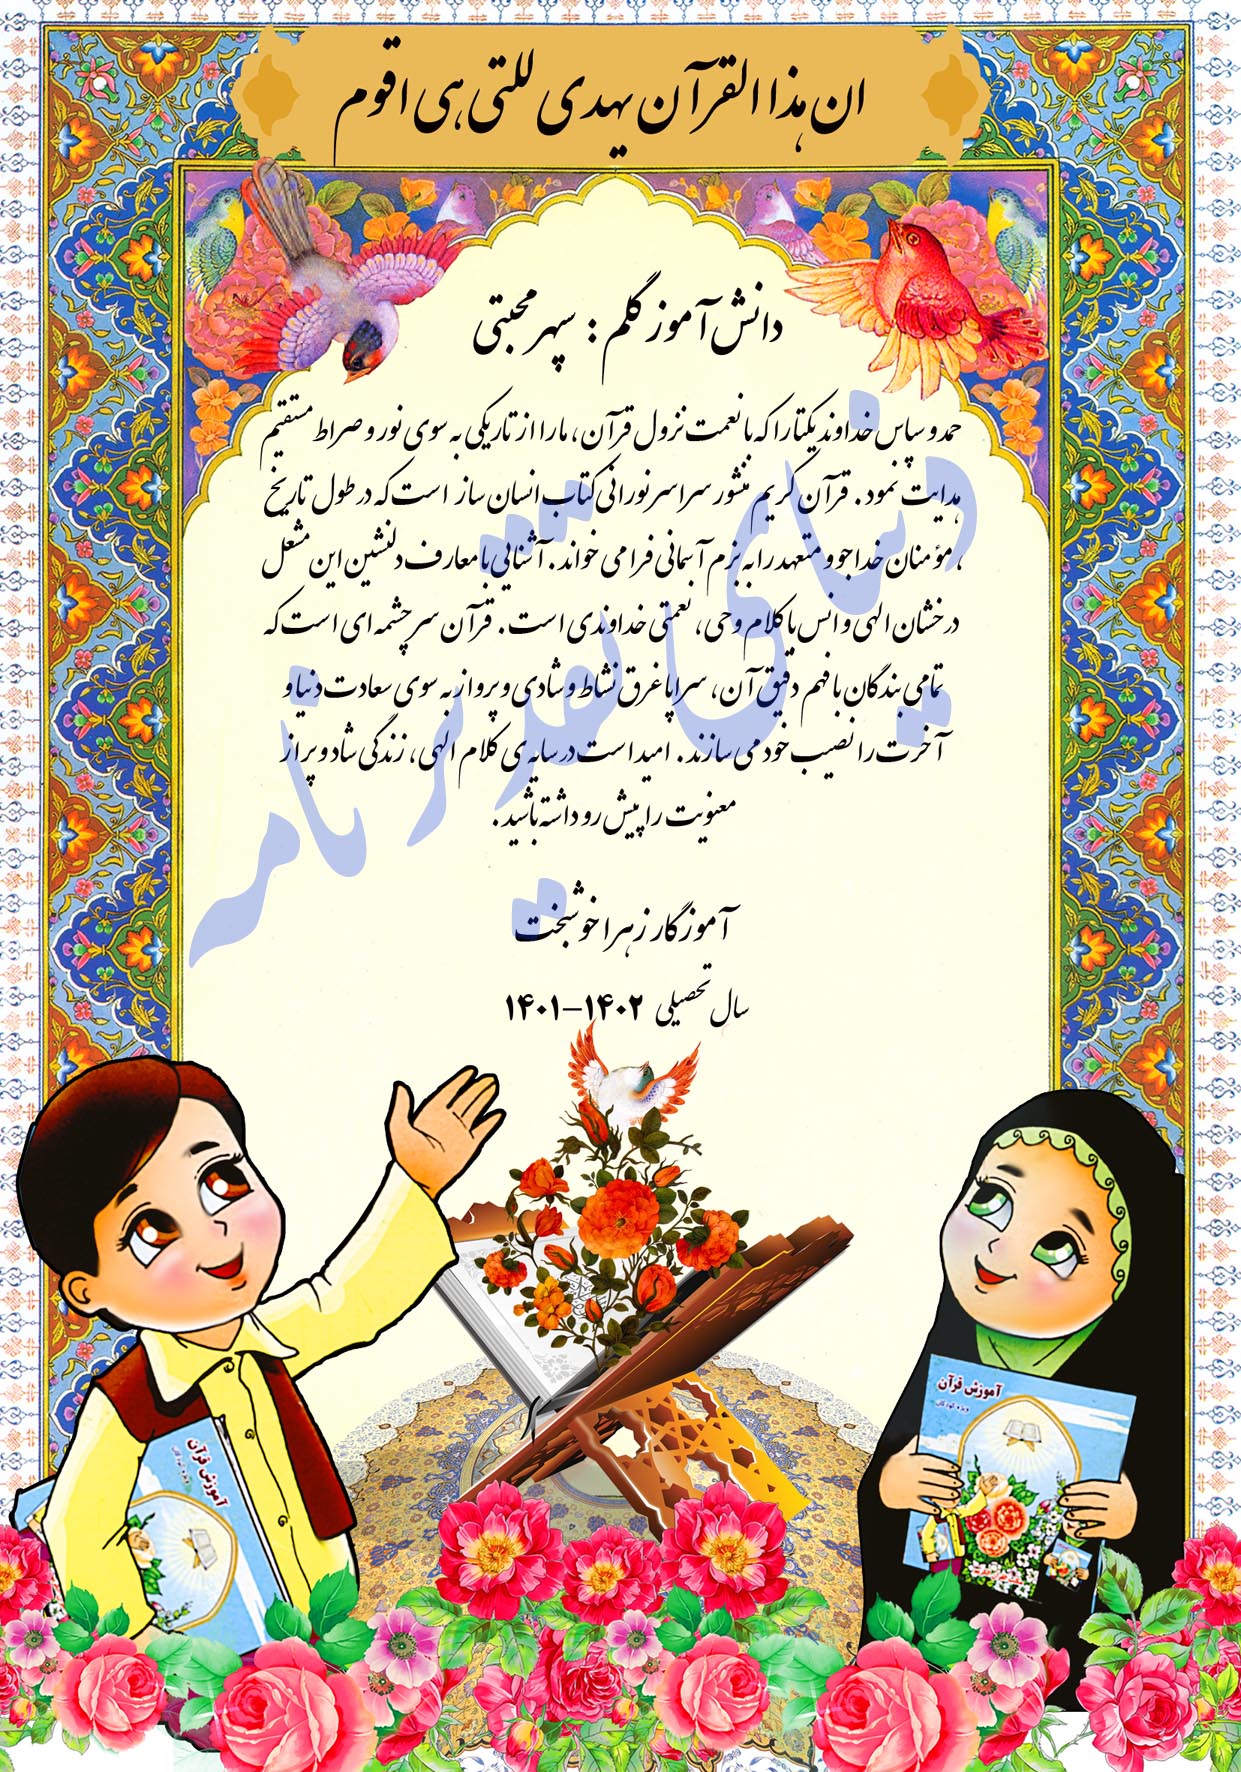 ان هذا القرآن یهدی للتی هی اقوم
دانش آموز گلم : سپهر محبتی
حمد و سپاس خداوند یکتا را که با نعمت نزول قرآن ، ما را از تاریکی به سوی نور و صراط مستقیم
هدایت نمود . قرآن کریم منشور سراسر نورانی کتاب انسان ساز است که در طول تاریخ
، مؤمنان خداجو و متعهد را به بزم آسمانی فرا می خواند . آشنایی با معارف دلنشین این مشعل
درخشان الهی و انس با کلام وحی ، نعمتی خداوندی است . قرآن سرچشمه ای است که
تمامی بندگان با فهم دقیق آن ، سراپا غرق نشاط و شادی و پرواز به سوی سعادت دنیا و
آخرت را نصیب خود می سازند . امید است در سایه ی کلام الهی ، زندگی شاد و پر از
معنویت را پیش رو داشته باشید .
دنیای تقدیرنامه
آموزگار زهرا خوشبخت
سال تحصیلی ۱۴۰۲-۱۴۰۱
آموزش قرآن
آموزش قرآن
ویژه کودکان